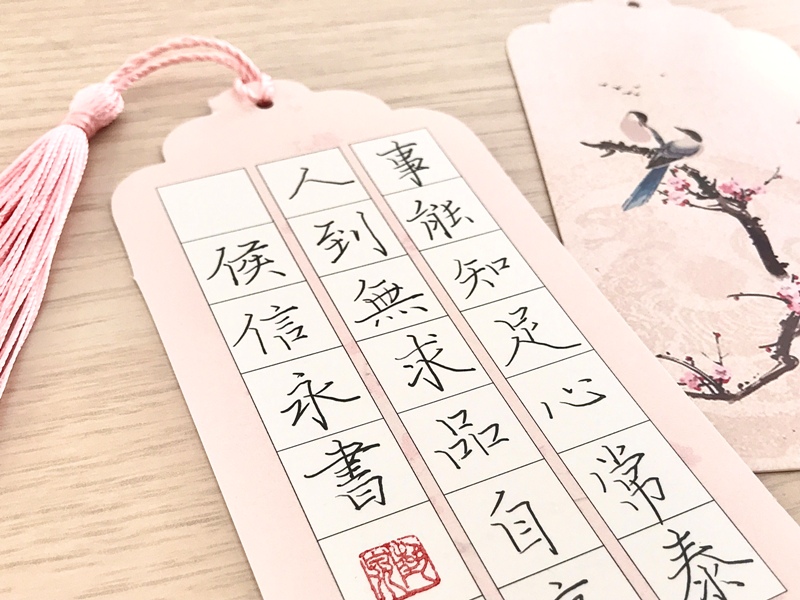 事能知足心常泰
人到無求品自
候信永書